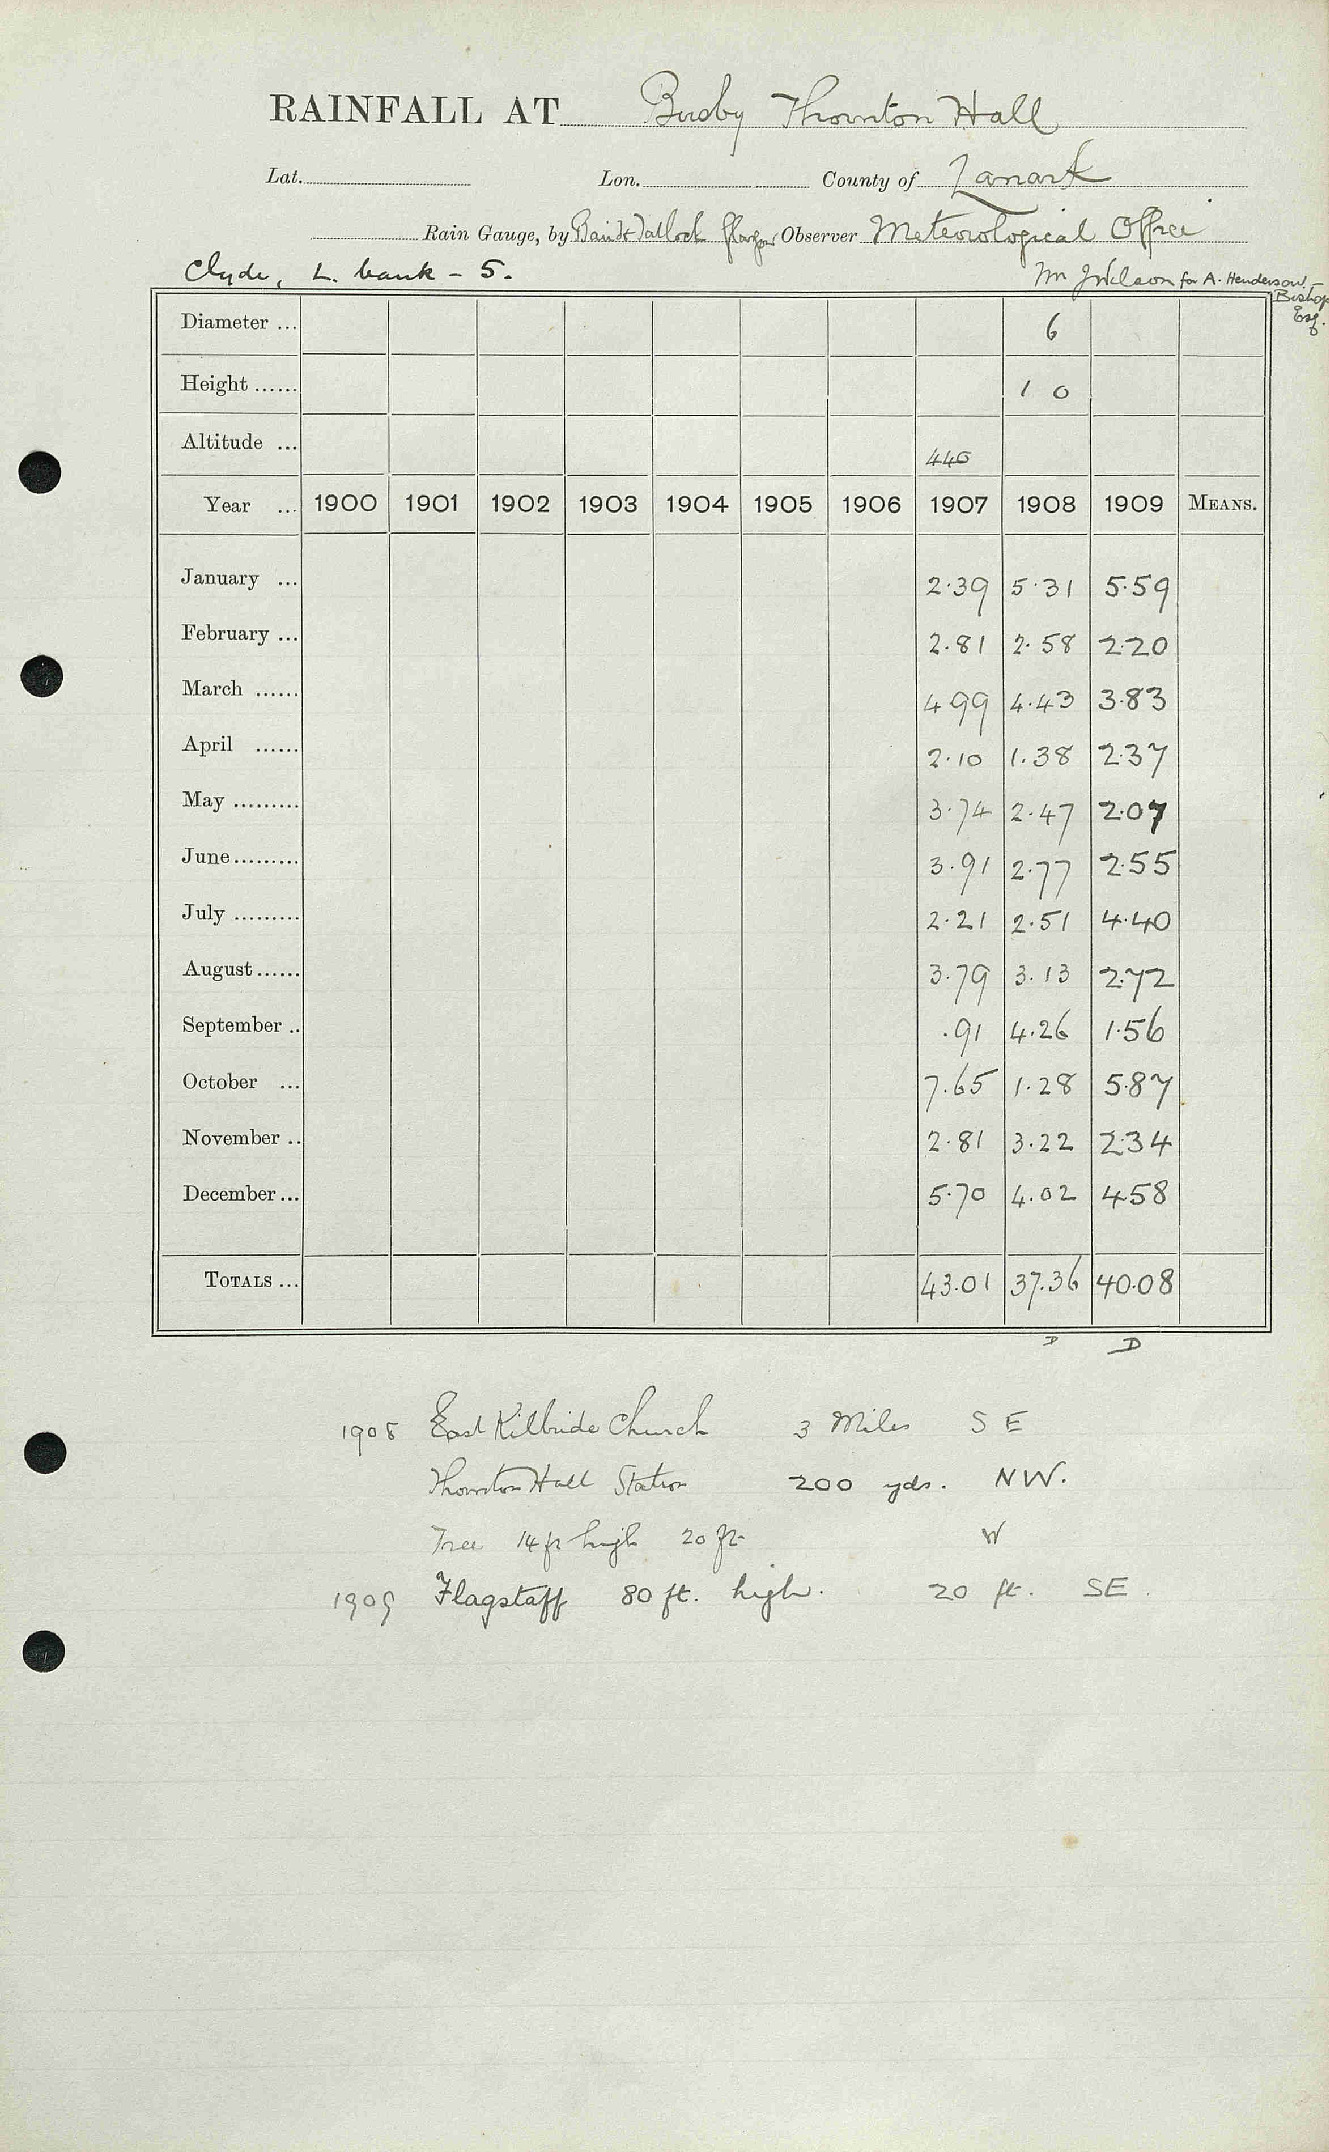 RAINFALL AT Busby Thornton Hall
Lat. Lon. County of Lanark
Rain Gauge, by Baird & Tatlock Glasgow Observer Meteorological Office
Clyde, L. bank - 5. Mr J Wilson for A. Henderson-
Bishop
Esq.
Diameter ... 6
Height ...... 1 0
Altitude ... 446
Year ... 1900 1901 1902 1903 1904 1905 1906 1907 1908 1909 MEANS.
January ... 2.39 5.31 5.59
February ... 2.81 2.58 2.20
March ...... 4 99 4.43 3.83
April ...... 2.10 1.38 2.37
May ......... 3.74 2.47 2.07
June ......... 3.91 2.77 2.55
July ......... 2.21 2.51 4.40
August ...... 3.79 3.13 2.72
September .. .91 4.26 1.56
October ... 7.65 1.28 5.87
November .. 2.81 3.22 2.34
December ... 5.70 4.02 4.58
TOTALS ... 43.01 37.36 40.08
D D
1908 East Kilbride Church 3 Miles S E
Thornton Hall Station 200 yds. NW.
Tree 14 ft high 20 ft W
1909 Flagstaff 80 ft. high. 20 ft. SE.